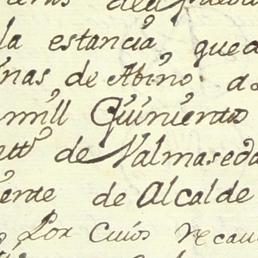 la estancia, qued
nas de Abino. a
mill Quiniento
ett. de Valmaseda
ente de Alcalde
Por Cuios Recau